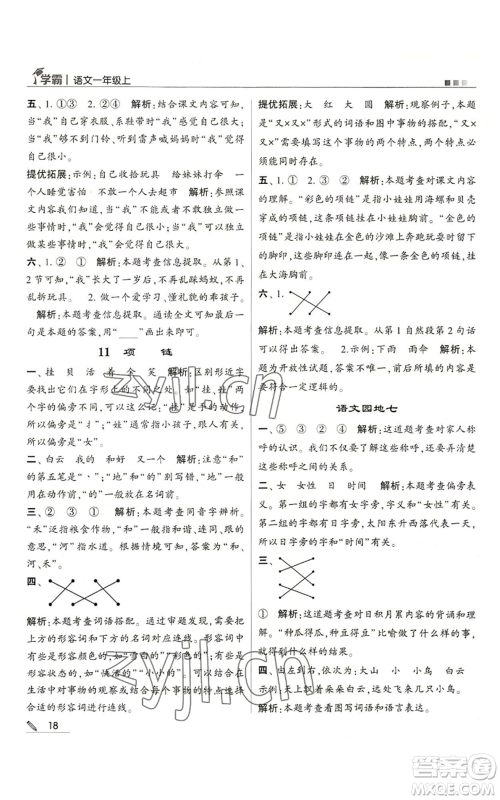 学霸 | 语文一年级上
五、1. ①③ 2. ②④ 解析:结合课文内容可知,
当“我”自己穿衣、系鞋带时“我”会觉得自己很大;
当“我”够不到门铃、听到雷声喊妈妈时“我”觉得
自己很小。
提优拓展:示例:自己收拾玩具 给妹妹打伞 一
个人睡觉害怕 一个人去超市 解析:参照课文
内容并结合生活实际,我们可知当“我”能独立做
某些事情时,“我”会觉得自己很大;不敢独立做一
些事情时,“我”会觉得自己很小。
六、1. ② ① 解析:本题考查信息提取。从第 1、
2 节可知,我长大了一岁了,不再乱踩蚂蚁、不再乱
扔玩具。 2. 做个爱学习、懂礼貌的好孩子。
解析:本题考查信息提取。从短文最后一句可知
本题的答案,用“____”画出来即可。
11 项 链
一、挂 贝 活 着 全 笑 解析:区别形近字
要结合字形和字义来记忆,如“挂、娃”,“挂”这
个字的意思是借助于绳子、钩子等,是手的动作,
所以偏旁是“扌”;“娃”本义指女子容貌美丽,
所以偏旁是“女”。
二、白云 我的 地上 和气 解析:注意“我”
的第五笔是“㇂”;“地”和“的”在使用时容易混
淆,不要写错。“的”一般放在名词前。
三、② ① ② ① 解析:本题考查同音字辨析。
“禾”泛指粮食作物,“和”在课文中有连同、跟、与
的意思,“河”指水道。可以组词“禾苗”“和气”
“小河”。
四、
解析:本题考查词语搭配。通过审题发现,需要把
上方的形容词和下方的名词对应连线。形容词中
有些是形容颜色的,如“黄黄的”“蓝蓝的”;有些是
形容状态的,如“快活的”“小小的”。我们可以结
合生活中能接触到的每个事物的特点来选择适当
的形容词进行连线。
18
提优拓展:大 红 大 圆 解析:观察例子,本题
是“又×又×”形式的词语和图中事物的搭配,“又
×又×”需要填写这个事物的两个特点,两个特点
必须都填对才行。
五、1. ③ ② 2. ④ ① 解析:本题考查对课文内
容的理解。“彩色的项链”指小娃娃用海螺和贝壳
穿成的项链,挂在小娃娃胸前;“金色的项链”指在
金色阳光照射下,小娃娃在金色的沙滩上奔跑留下
的脚印,这脚印连起来像一条金色的项链,挂
在大海胸前。
六、1.
解析:本题考查信息提取。从第 1 自然段第 2 句话可
以得出答案。 2. 示例:下雨 雨伞 解析:本
题为开放性试题,答案不唯一。所填写的事物要
符合一定逻辑的。
语文园地七
一、⑤ ③ ② ④ ① 解析:这道题考查对家人称
呼的认识。我们从小就开始学习各种称呼,平时
要多积累。
二、女 女性 日 时间 解析:本题考查偏旁表
义。第一组的字都有女字旁,女字旁与女性有关。
第二组的字都有日字旁,太阳东升西落代表一天,
所以日字旁与时间有关。
三、
① 解析:这道题考查对日积月累内容的背诵和理
解。“种瓜得瓜,种豆得豆”的意思就是做了什么
样的事,得到什么样的结果。
四、由左到右,依次为:大山 小 小鸟 白云 示
例:天上飘着朵朵白云,飞来几只小鸟。
解析:本题考查看图写词语和词语的积累运用。
zyjl.cn
zyjl.cn
作业精灵